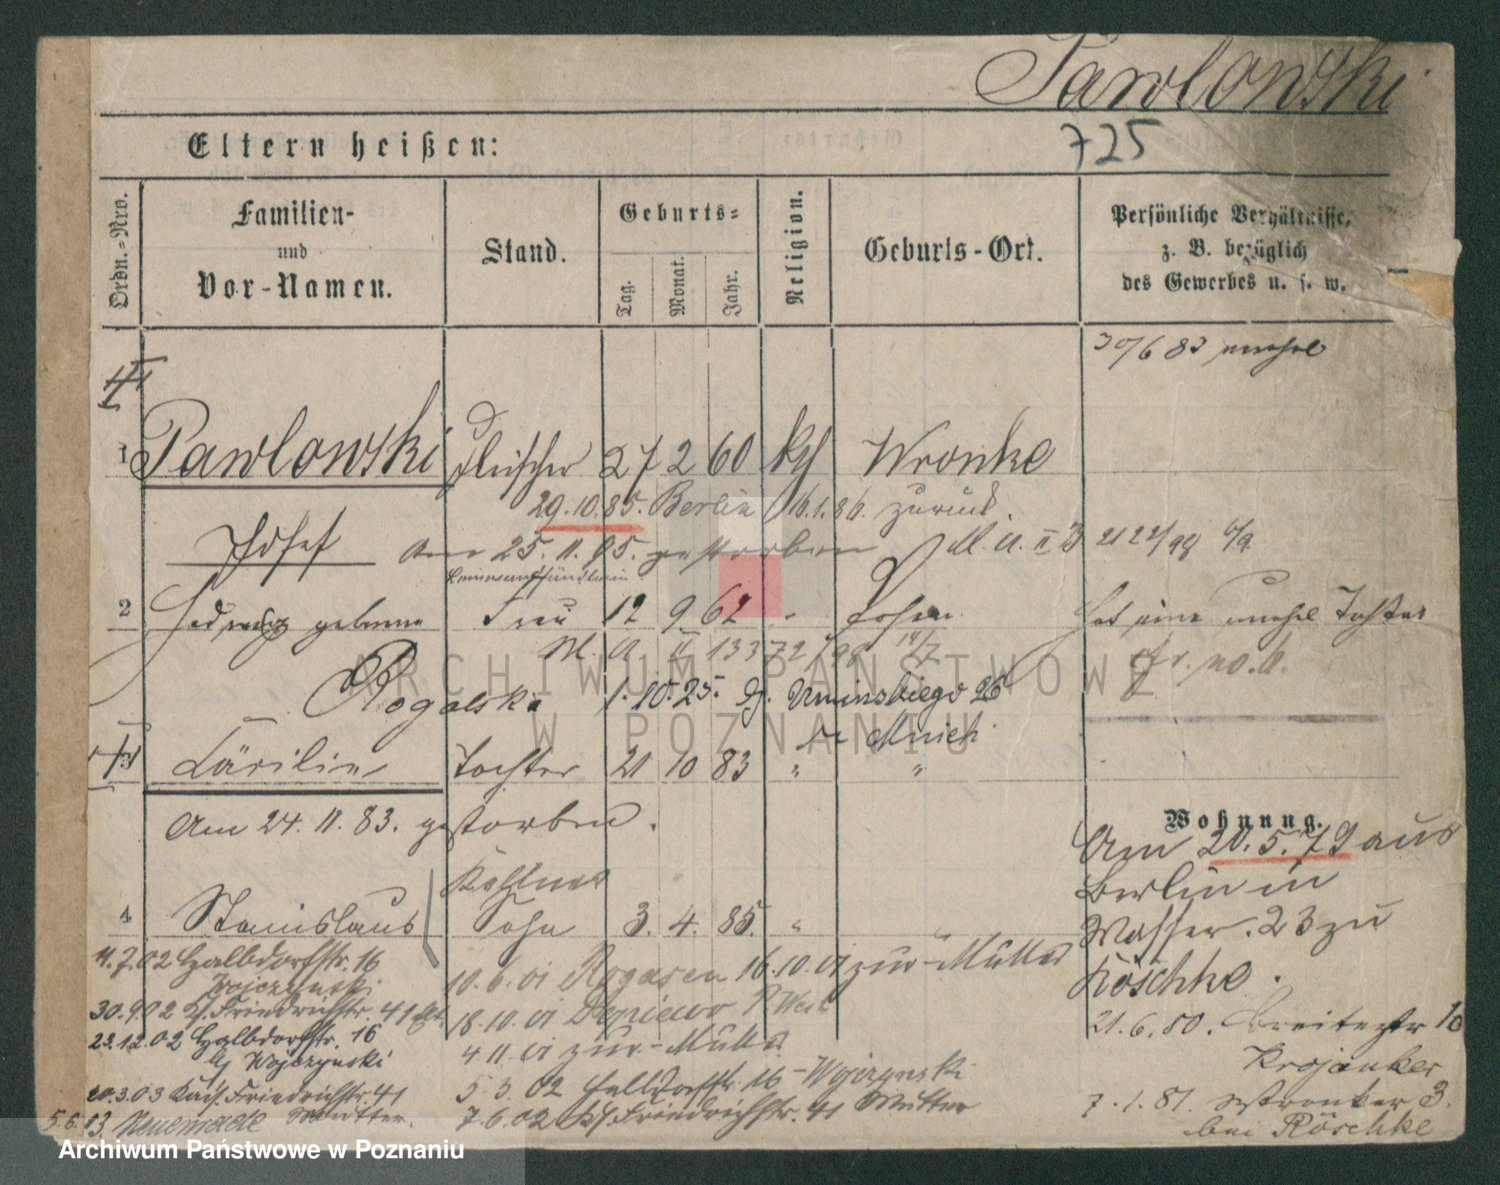 Pawlowski
725
Eltern heißen:
Ordn.=Nro.
Familien-
und
Vor-Namen.
Stand.
Geburts=
Tag.
Monat.
Jahr.
Religion.
Geburts-Ort.
Persönliche Verhältnisse,
z. B. bezüglich
des Gewerbes u. s. w.
30/6 83
1 Pawlowski Fleischer 27 2 60 kth Wronke
29.10.85. Berlin 16.1.86. zurück.
Josef am 25. 11. 95. gestorben
2 Hedwig geborene Frau 12 9 62 " Posen
Hat eine unehel Tochter
Rogalska 1.10.25. Umińskiego 26
Mnich
3 Cäcilie Tochter 21 10 83 " "
Am 24. 11. 83. gestorben.
Wohnung.
Am 20. 5. 79 aus
Berlin in
Wasser. 23 zu
Röschke.
Kellner
4 Stanislaus Sohn 3. 4. 85. " "
11.7.02 Halbdorfstr. 16
Wojczynski
10.6.01 Rogasen 16.10.01 zur Mutter
30.9.02 Ks. Friedrichstr. 41
18.10.01
21.6.80. Breitestr 10
23.12.02 Halbdorfstr. 16
bei Wojczynski
4 11.01 zur Mutter
Krojanker
20.3.03 Kais. Friedrichstr. 41
5.3.02 Halbdorfstr. 16 Wojczynski
7.1.81. Wronker 3.
5.6.13 Mutter.
7.6.02 Ks. Friedrichstr. 41 Mutter
bei Röschke
ARCHIWUM PAŃSTWOWE
W POZNANIU
Archiwum Państwowe w Poznaniu